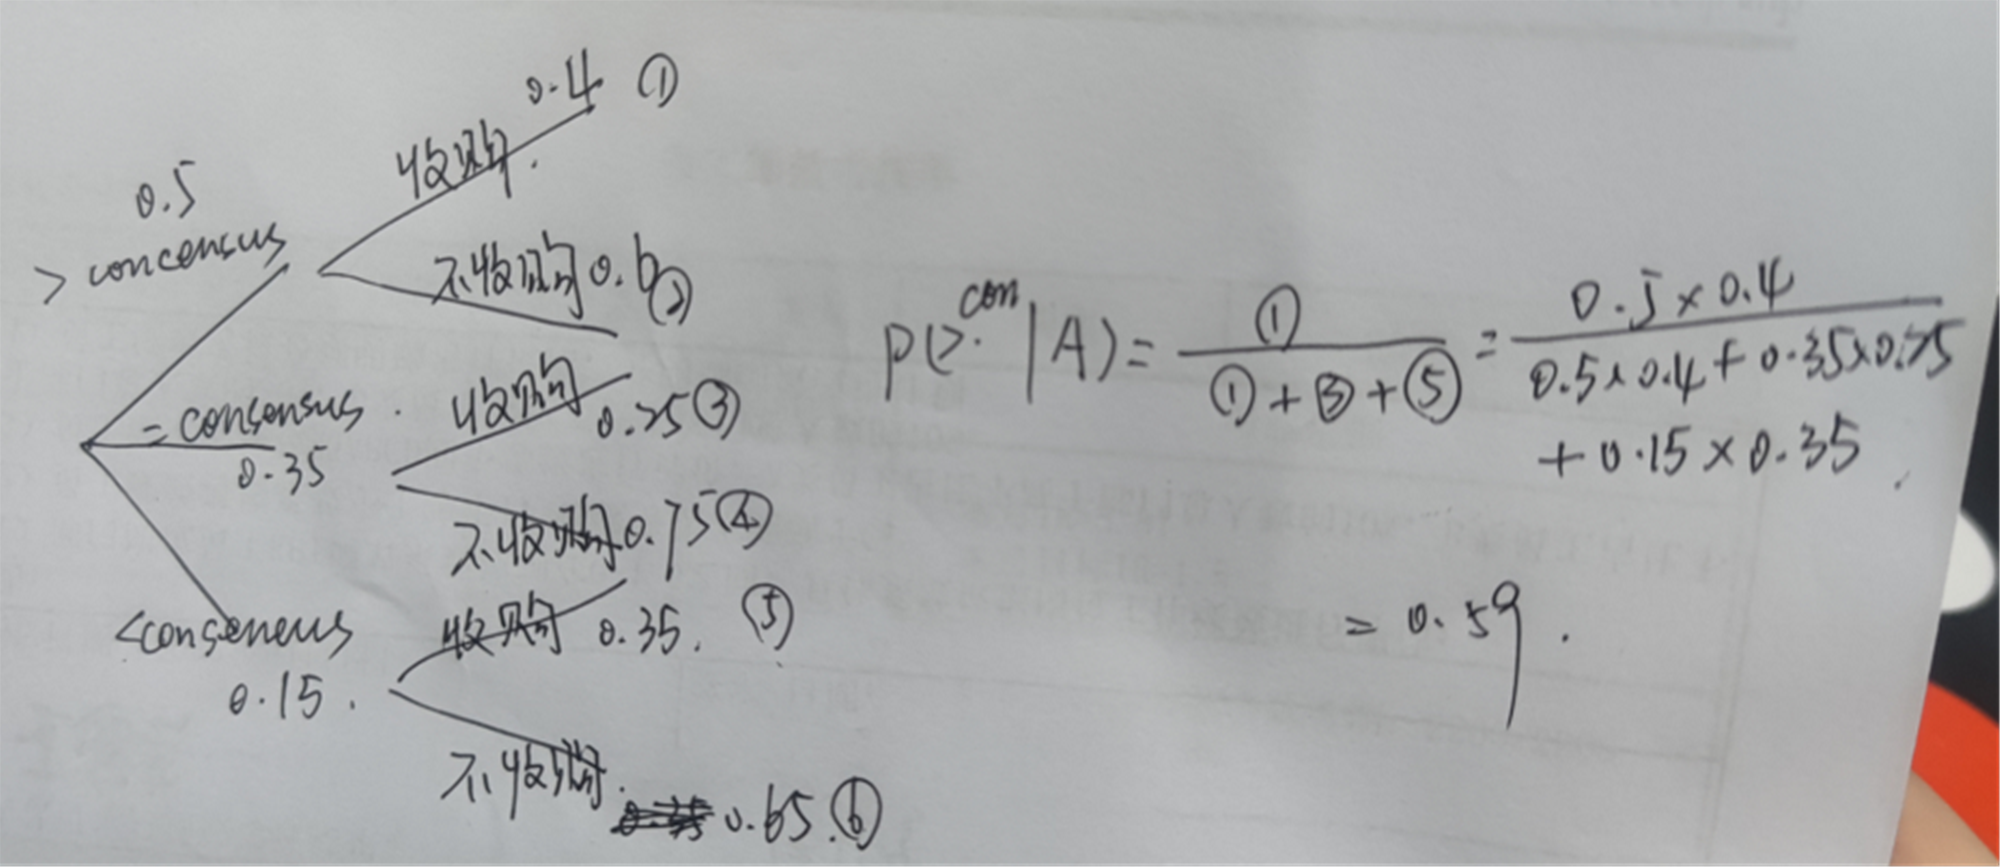 0.4 ①
收购.
0.5
> concensus
不收购 0.6 ②
= consensus. 收购 0.25 ③
0.35
不收购 0.75 ④
<conseneus 收购 0.35. ⑤
0.15.
不收购. 0.65. ⑥
P(>.con|A) = ① / ①+③+⑤ = 0.5×0.4 / 0.5×0.4+0.35×0.25
+0.15×0.35
= 0.59.